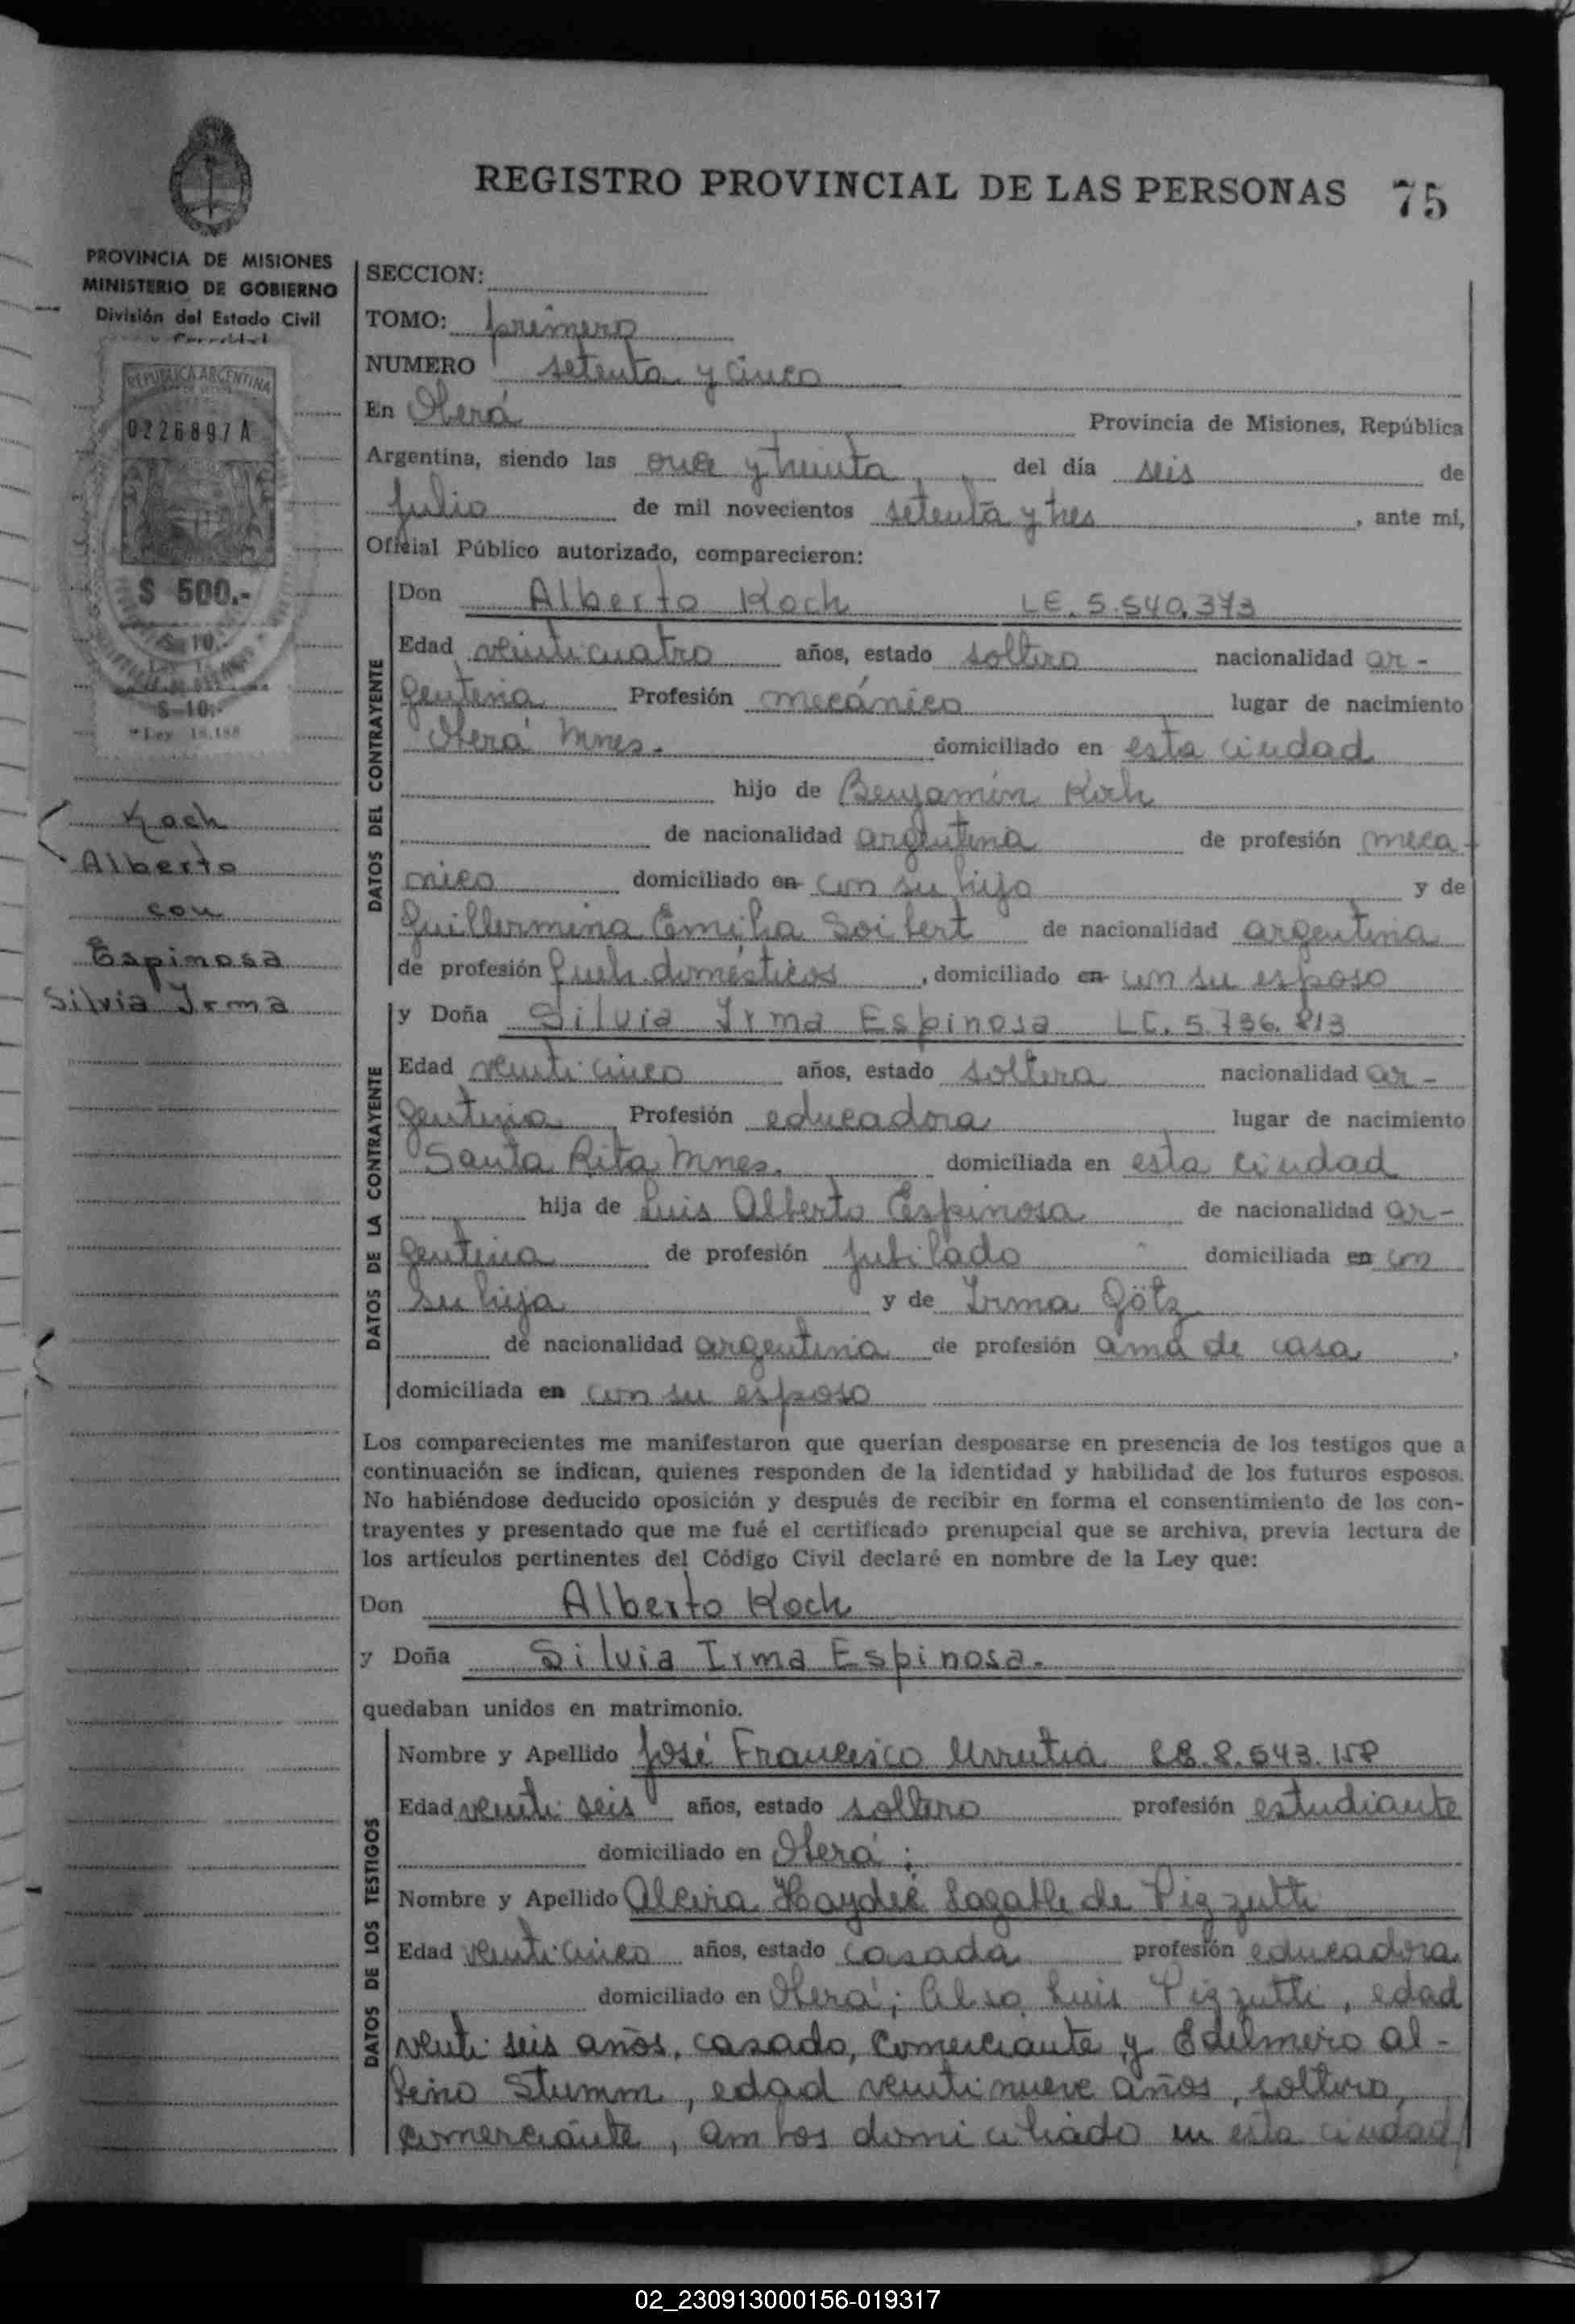 REGISTRO PROVINCIAL DE LAS PERSONAS 75
PROVINCIA DE MISIONES
MINISTERIO DE GOBIERNO
División del Estado Civil
REPUBLICA ARGENTINA
0226897 A
$ 500.-
$ 10.-
Ley 18.188
Koch
Alberto
con
Espinosa
Silvia Irma
SECCION:
TOMO: primero
NUMERO setenta y cinco
En Oberá Provincia de Misiones, República
Argentina, siendo las once y treinta del día seis de
Julio de mil novecientos setenta y tres, ante mí,
Oficial Público autorizado, comparecieron:
DATOS DEL CONTRAYENTE
Don Alberto Koch LE. 5.540.373
Edad veinticuatro años, estado soltero nacionalidad ar-
gentina Profesión mecánico lugar de nacimiento
Oberá Mnes. domiciliado en esta ciudad
hijo de Benjamín Koch
de nacionalidad argentina de profesión meca-
nico domiciliado en con su hijo y de
Guillermina Emilia Soibert de nacionalidad argentina
de profesión queh. domésticos, domiciliado en con su esposo
DATOS DE LA CONTRAYENTE
y Doña Silvia Irma Espinosa LC. 5.736.813
Edad veinti cinco años, estado soltera nacionalidad ar-
gentina Profesión educadora lugar de nacimiento
Santa Rita Mnes. domiciliada en esta ciudad
hija de Luis Alberto Espinosa de nacionalidad ar-
gentina de profesión jubilado domiciliada en con
su hija y de Irma Götz
de nacionalidad argentina de profesión ama de casa,
domiciliada en con su esposo
Los comparecientes me manifestaron que querían desposarse en presencia de los testigos que a
continuación se indican, quienes responden de la identidad y habilidad de los futuros esposos.
No habiéndose deducido oposición y después de recibir en forma el consentimiento de los con-
trayentes y presentado que me fué el certificado prenupcial que se archiva, previa lectura de
los artículos pertinentes del Código Civil declaré en nombre de la Ley que:
Don Alberto Koch
y Doña Silvia Irma Espinosa.
quedaban unidos en matrimonio.
DATOS DE LOS TESTIGOS
Nombre y Apellido José Francisco Urrutia
Edad veinti seis años, estado soltero profesión estudiante
domiciliado en Oberá;
Nombre y Apellido Alcira Haydeé de Pizzutti
Edad veinti cinco años, estado casada profesión educadora
domiciliado en Oberá; Luis Pizzutti, edad
veinti seis años, casado, comerciante y Edelmiro Al-
bino Stumm, edad veintinueve años, soltero,
comerciante, ambos domiciliado en esta ciudad
02_230913000156-019317